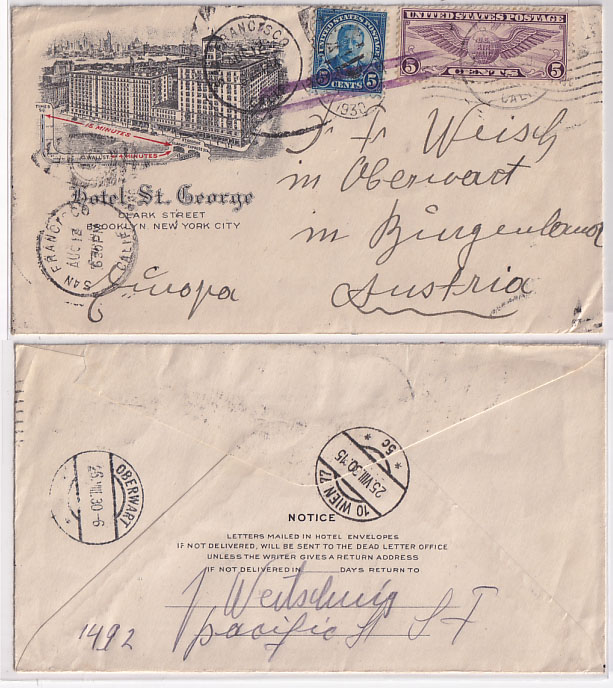 UNITED STATES POSTAGE
5 CENTS 5
UNITED STATES POSTAGE
5 CENTS 5
1930
CALIF
15 MINUTES
4 MINUTES
Hotel St. George
CLARK STREET
BROOKLYN, NEW YORK CITY
SAN FRANCISCO CALIF.
AUG 12
630PM
Fr. Weisch
in Oberwart
in Burgenland
Austria
Europa
OBERWART
25.VIII.30.-6
10 WIEN 77
25.VIII.30.15
* 5c *
NOTICE
LETTERS MAILED IN HOTEL ENVELOPES
IF NOT DELIVERED, WILL BE SENT TO THE DEAD LETTER OFFICE
UNLESS THE WRITER GIVES A RETURN ADDRESS
IF NOT DELIVERED IN DAYS RETURN TO
J. Weitschnig
1492 pacific St S F